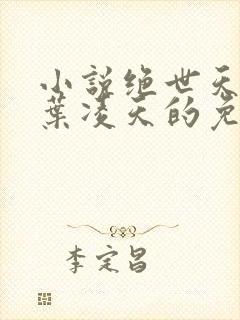 小说绝世天
叶凌天的免
李定昌